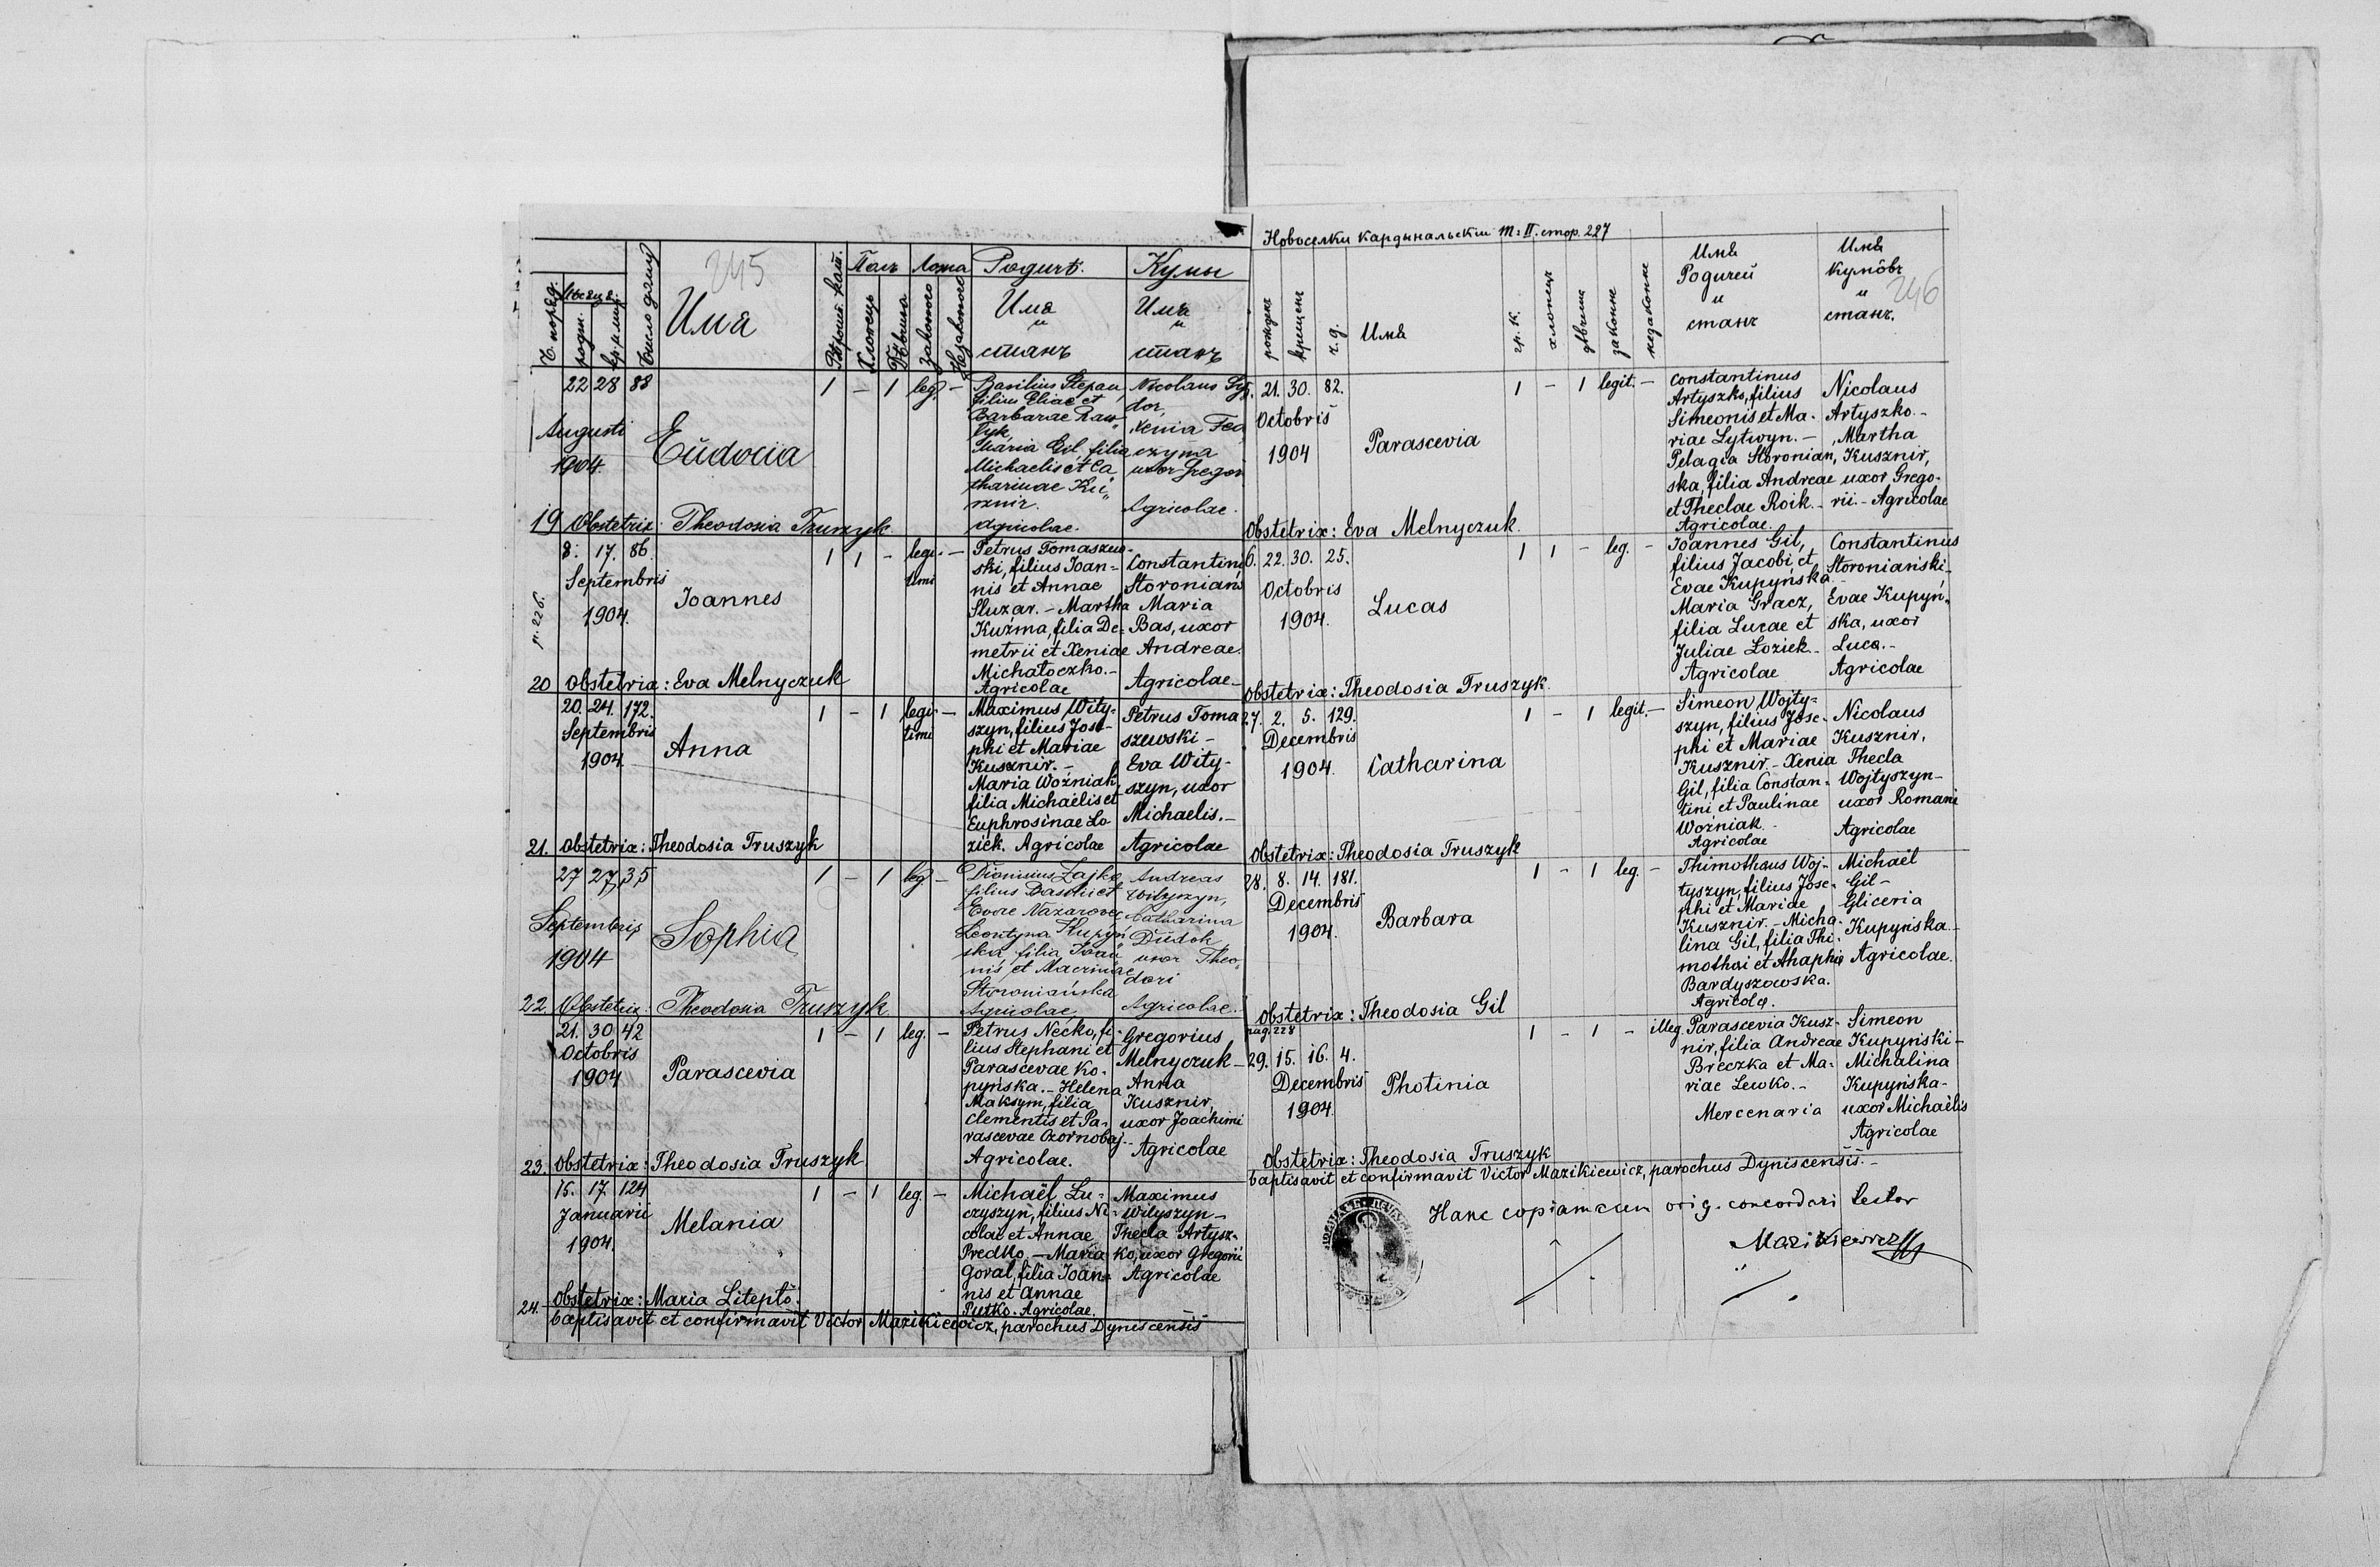 245
Ч. поряд.
Мѣсяца
родж.
Число дому
Имя
Хлопець
Полъ
Ложа
законного
Незаконного
Родит.
Имя
и
станъ
Кумы
Имя
и
станъ
22 28 88
Augusti
1904
Eudocia
1 – 1 leg. –
Basilius Stepan,
filius Eliae et
Barbarae
Maria Gil, filia
Michaelis et Ca„
tharinae Ku„
sznir.
Agricolae.
Nicolaus Sy„
dor,
Xenia
uxor Gregor
Agricolae.
19 Obstetrix: Theodosia Truszyk
8. 17. 86.
Septembris
1904.
p. 226.
Joannes
1 1 – legi- –
timi
Petrus Tomaszew-
ski, filius Joan-
nis et Annae
Sluzar. – Martha
Kuźma, filia De-
metrii et Xeniae
Michatoczko. –
Agricolae
Constantini
Storonianś
Maria
Bas, uxor
Andreae.
Agricolae –
20 Obstetrix: Eva Melnyczuk
20. 24. 172.
Septembris
1904.
Anna
1 – 1 legi- –
timi
Maximus, Wity-
szyn, filius Jose-
phi et Mariae
Kusznir. –
Maria Woźniak,
filia Michaelis et
Euphrosinae Lo
ziek. Agricolae
Petrus Toma
szewski –
Eva Wity-
szyn, uxor
Michaelis. –
Agricolae
21. Obstetrix: Theodosia Truszyk
27 27, 35
Septembris
1904
Sophia
1 – 1 leg. –
Dionisius Zajko
filius Basilii et
Evae Nazarowec
Leontyna Kupyń
ska, filia Joan„
nis et Macrinae
Storoniańska
Agricolae
Andreas
Wityszyn,
Catharina
Dudok,
uxor Theo„
dori
Agricolae.
22 Obstetrix: Theodosia Truszyk
21. 30 42
Octobris
1904
Parascevia
1 – 1 leg. –
Petrus Nećko, fi-
lius Stephani et
Parascevae Ko-
pynska. – Helena
Maksym, filia
Clementis et Pa-
rascevae Ozornobaj. –
Agricolae.
Gregorius
Melnyczuk –
Anna
Kusznir,
uxor Joachimi
Agricolae
23. Obstetrix: Theodosia Truszyk
15. 17. 124
Januarii
1904.
Melania
1 – 1 leg. –
Michaël Lu-
czyszyn, filius Ni-
colai et Annae
Predko. – Maria
Goral, filia Joan-
nis et Annae
Putko. Agricolae.
Maximus
Wityszyn –
Thecla Artysz-
ko, uxor Gregorii
Agricolae
24. – Obstetrix: Maria Liteplo.
baptisavit et confirmavit Victor Mazikiewicz, parochus Dyniscensis
Новоселки кардынальскіи т: II. стор. 227
246
рожденя
крещеня
ч. д.
Имя
гр. к.
хлопецъ
дѣвчина
законне
незаконне
Имя
Родичей
и
станъ
Имя
кумôвъ
и
станъ.
21. 30. 82.
Octobris
1904
Parascevia
1 – 1 legit. –
Constantinus
Artyszko, filius
Simeonis et Ma-
riae Lytwyn. –
Pelagia Storonian,
ska, filia Andreae
et Theclae Roik. –
Agricolae.
Nicolaus
Artyszko. –
Martha
Kusznir,
uxor Grego-
rii. – Agricolae
Obstetrix: Eva Melnyczuk.
6. 22. 30. 25.
Octobris
1904.
Lucas
1 1 – leg. –
Joannes Gil,
filius Jacobi, et
Evae Kupyńska.
Maria Gracz,
filia Lucae et
Juliae Loziek. –
Agricolae
Constantinus
Storoniański –
Evae Kupyń-
ska, uxor
Luca. –
Agricolae
Obstetrix: Theodosia Truszyk.
27. 2. 5. 129.
Decembris
1904.
Catharina
1 – 1 legit. –
Simeon Wojty-
szyn, filius Jose-
phi et Mariae
Kusznir. – Xenia
Gil, filia Constan-
tini et Paulinae
Woźniak. –
Agricolae
Nicolaus
Kusznir,
Thecla
Wojtyszyn –
uxor Romani
Agricolae
Obstetrix: Theodosia Truszyk
28. 8. 14. 181.
Decembris
1904.
Barbara
1 – 1 leg. –
Thimotheus Woj-
tyszyn, filius Jose-
phi et Mariae
Kusznir. – Micha-
lina Gil, filia Thi-
mothai et Ahaphia
Bardyszowska.
Agricolae.
Michaël
Gil –
Gliceria
Kupyńska. –
Agricolae.
Obstetrix: Theodosia Gil
pag. 228
29. 15. 16. 4.
Decembris
1904.
Photinia
1 – 1 – illeg.
Parascevia Kusz-
nir, filia Andreae
Breczka et Ma-
riae Lewko. –
Mercenaria
Simeon
Kupyński –
Michalina
Kupyńska –
uxor Michaëlis
Agricolae
Obstetrix: Theodosia Truszyk
baptisavit et confirmavit Victor Mazikiewicz, parochus Dyniscensis. –
Hanc copiam cum orig. concordari testor
Mazikiewicz